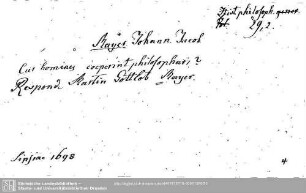 Hist. philosoph. gener.
29, 2.
Mayer Johann Jacob
Cur homines coeperint philosophari?
Respond. Martin Gottlob Mayer.
Lipsiae 1698
4
Sächsische Landesbibliothek –
Staats- und Universitätsbibliothek Dresden